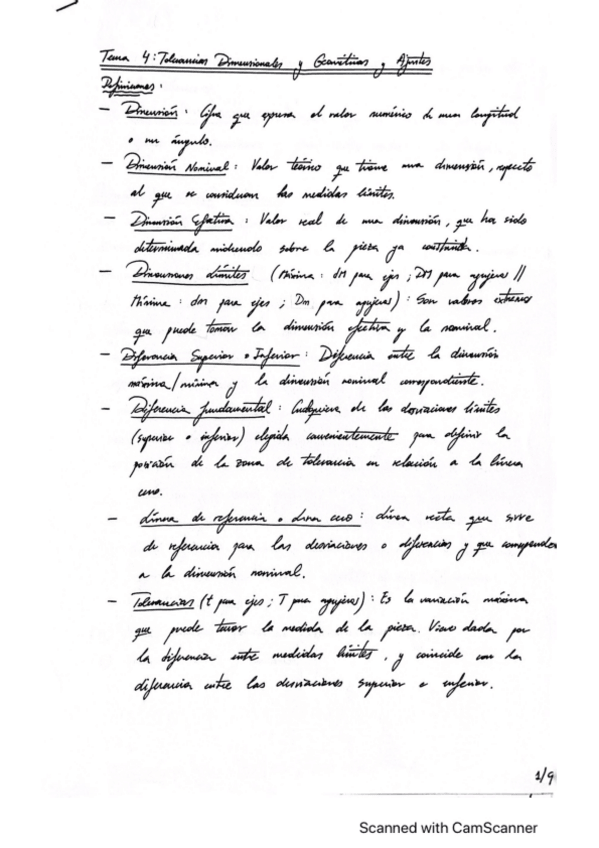 Tema 4: Tolerancias Dimensionales y Geométricas y Ajustes
Definiciones:
- Dimensión: Cifra que expresa el valor numérico de una longitud
o un ángulo.
- Dimensión Nominal: Valor teórico que tiene una dimensión, respecto
al que se consideran las medidas límites.
- Dimensión Efectiva: Valor real de una dimensión, que ha sido
determinada midiendo sobre la pieza ya construida.
- Dimensiones límites (Máxima: dM para ejes; DM para agujeros //
Mínima: dm para ejes; Dm para agujeros): Son valores extremos
que puede tomar la dimensión efectiva y la nominal.
- Diferencia Superior o Inferior: Diferencia entre la dimensión
máxima/mínima y la dimensión nominal correspondiente.
- Diferencia fundamental: Cualquiera de las desviaciones límites
(superior o inferior) elegida convenientemente para definir la
posición de la zona de tolerancia en relación a la línea
cero.
- Línea de referencia o línea cero: Línea recta que sirve
de referencia para las desviaciones o diferencias y que corresponde
a la dimensión nominal.
- Tolerancias (t para ejes; T para agujeros): Es la variación máxima
que puede tener la medida de la pieza. Viene dada por
la diferencia entre medidas límites, y coincide con la
diferencia entre las desviaciones superior e inferior.
1/9
Scanned with CamScanner